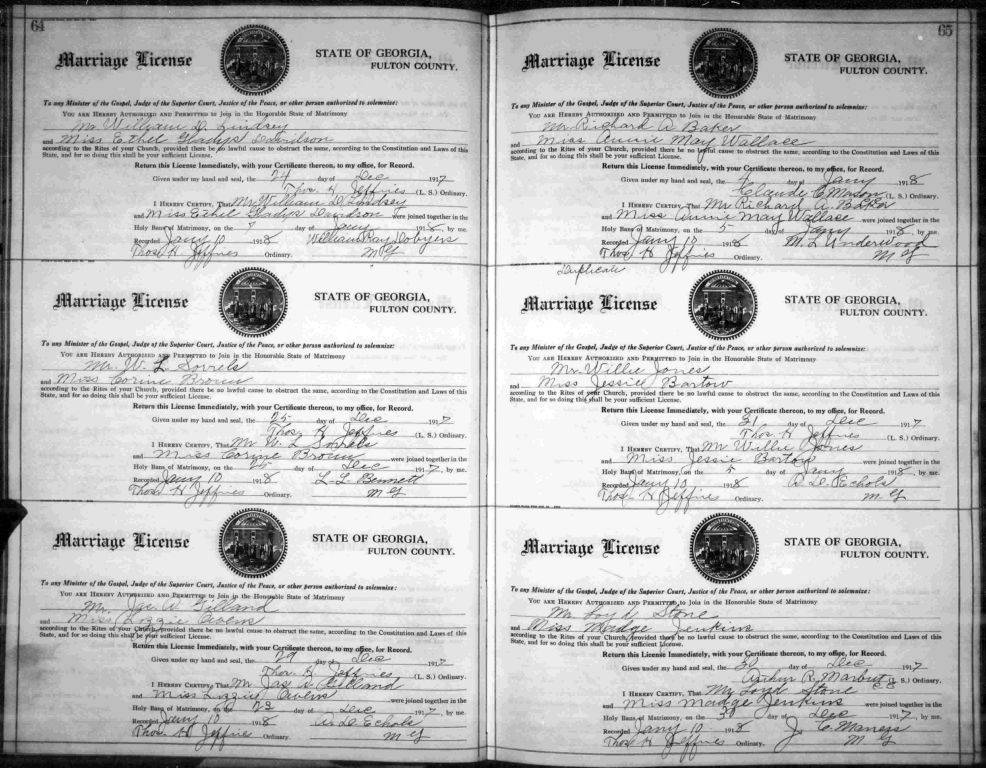 64
Marriage License
STATE OF GEORGIA,
FULTON COUNTY.
To any Minister of the Gospel, Judge of the Superior Court, Justice of the Peace, or other person authorized to solemnize:
YOU ARE HEREBY AUTHORIZED AND PERMITTED to Join in the Honorable State of Matrimony
Mr. William D. Lindsey
and Miss Ethel Gladys Davidson
according to the Rites of your Church, provided there be no lawful cause to obstruct the same, according to the Constitution and Laws of this
State, and for so doing this shall be your sufficient License.
Return this License Immediately, with your Certificate thereon, to my office, for Record.
Given under my hand and seal, the 24 day of Dec 1917
Thos. H Jeffries (L. S.) Ordinary.
I HEREBY CERTIFY, That Mr William D Lindsey
and Miss Ethel Gladys Davidson were joined together in the
Holy Bans of Matrimony, on the 7 day of Jany 1918, by me.
Recorded Jany 10 1918 William Ray Dobyens
Thos H Jeffries Ordinary. M G
Marriage License
STATE OF GEORGIA,
FULTON COUNTY.
To any Minister of the Gospel, Judge of the Superior Court, Justice of the Peace, or other person authorized to solemnize:
YOU ARE HEREBY AUTHORIZED AND PERMITTED to Join in the Honorable State of Matrimony
Mr. W. L Sorrels
and Miss Corine Brown
according to the Rites of your Church, provided there be no lawful cause to obstruct the same, according to the Constitution and Laws of this
State, and for so doing this shall be your sufficient License.
Return this License Immediately, with your Certificate thereon, to my office, for Record.
Given under my hand and seal, the 25 day of Dec 1917
Thos. H Jeffries (L. S.) Ordinary.
I HEREBY CERTIFY, That Mr W L Sorrels
and Miss Corine Brown were joined together in the
Holy Bans of Matrimony, on the 25 day of Dec 1917, by me.
Recorded Jany 10 1918 L. L Bennett
Thos H Jeffries Ordinary. M G
Marriage License
STATE OF GEORGIA,
FULTON COUNTY.
To any Minister of the Gospel, Judge of the Superior Court, Justice of the Peace, or other person authorized to solemnize:
YOU ARE HEREBY AUTHORIZED AND PERMITTED to Join in the Honorable State of Matrimony
Mr. Jas W Gilland
and Miss Lizzie Owens
according to the Rites of your Church, provided there be no lawful cause to obstruct the same, according to the Constitution and Laws of this
State, and for so doing this shall be your sufficient License.
Return this License Immediately, with your Certificate thereon, to my office, for Record.
Given under my hand and seal, the day of Dec 1917
Thos H Jeffries (L. S.) Ordinary.
I HEREBY CERTIFY, That Mr Jas W Gilland
and Miss Lizzie Owens were joined together in the
Holy Bans of Matrimony, on the 23 day of Dec 1917, by me.
Recorded Jany 10 1918 D Echols
Thos. H Jeffries Ordinary. M G
65
Marriage License
STATE OF GEORGIA,
FULTON COUNTY.
To any Minister of the Gospel, Judge of the Superior Court, Justice of the Peace, or other person authorized to solemnize:
YOU ARE HEREBY AUTHORIZED AND PERMITTED to Join in the Honorable State of Matrimony
Mr Richard A Baker
and Miss Annie May Wallace
according to the Rites of your Church, provided there be no lawful cause to obstruct the same, according to the Constitution and Laws of this
State, and for so doing this shall be your sufficient License.
Return this License Immediately, with your Certificate thereon, to my office, for Record.
Given under my hand and seal, the 4 day of Jany 1918
Claude C Mason (L. S.) Ordinary.
I HEREBY CERTIFY, That Mr Richard A. Baker
and Miss Annie May Wallace were joined together in the
Holy Bans of Matrimony, on the 5 day of Jany 1918, by me.
Recorded Jany 10 1918 M. L Underwood
Thos H Jeffries Ordinary. M G
Duplicate
Marriage License
STATE OF GEORGIA,
FULTON COUNTY.
To any Minister of the Gospel, Judge of the Superior Court, Justice of the Peace, or other person authorized to solemnize:
YOU ARE HEREBY AUTHORIZED AND PERMITTED to Join in the Honorable State of Matrimony
Mr Willie Jones
and Miss Jessie Bartow
according to the Rites of your Church, provided there be no lawful cause to obstruct the same, according to the Constitution and Laws of this
State, and for so doing this shall be your sufficient License.
Return this License Immediately, with your Certificate thereon, to my office, for Record.
Given under my hand and seal, the 31 day of Dec 1917
Thos H Jeffries (L. S.) Ordinary.
I HEREBY CERTIFY, That Mr Willie Jones
and Miss Jessie Bartow were joined together in the
Holy Bans of Matrimony, on the 5 day of Jany 1918, by me.
Recorded Jany 10 1918 D. Echols
Thos. H Jeffries Ordinary. M. G
Marriage License
STATE OF GEORGIA,
FULTON COUNTY.
To any Minister of the Gospel, Judge of the Superior Court, Justice of the Peace, or other person authorized to solemnize:
YOU ARE HEREBY AUTHORIZED AND PERMITTED to Join in the Honorable State of Matrimony
Mr Stone
and Miss Madge Jenkins
according to the Rites of your Church, provided there be no lawful cause to obstruct the same, according to the Constitution and Laws of this
State, and for so doing this shall be your sufficient License.
Return this License Immediately, with your Certificate thereon, to my office, for Record.
Given under my hand and seal, the 30 day of Dec 1917
Arthur R. Marbut (L. S.) Ordinary.
I HEREBY CERTIFY, That Mr Loyd Stone
and Miss Madge Jenkins were joined together in the
Holy Bans of Matrimony, on the 30 day of Dec 1917, by me.
Recorded Jany 10 1918 J. C. Maness
Thos H Jeffries Ordinary. M G